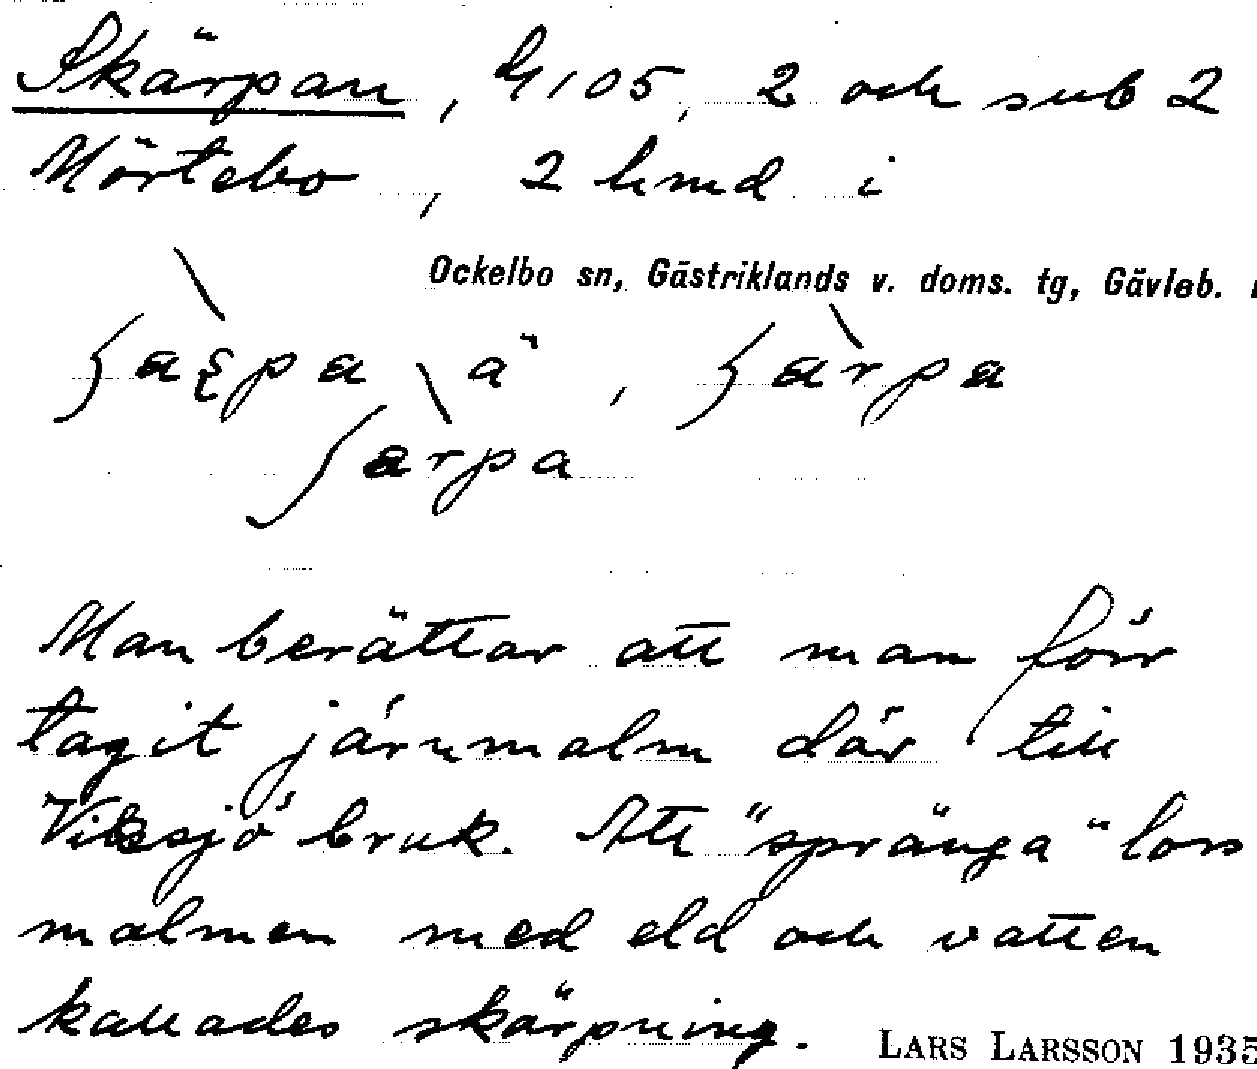 Skärpan, G 105, 2 och sub 2
Mörtebo, 2 hmd i
Ockelbo sn, Gästriklands v. doms. tg, Gävleb.
Man berättar att man förr
tagit järnmalm där till
Viksjö bruk. Att "spränga" loss
malmen med eld och vatten
kallades skärpning.
LARS LARSSON 1935